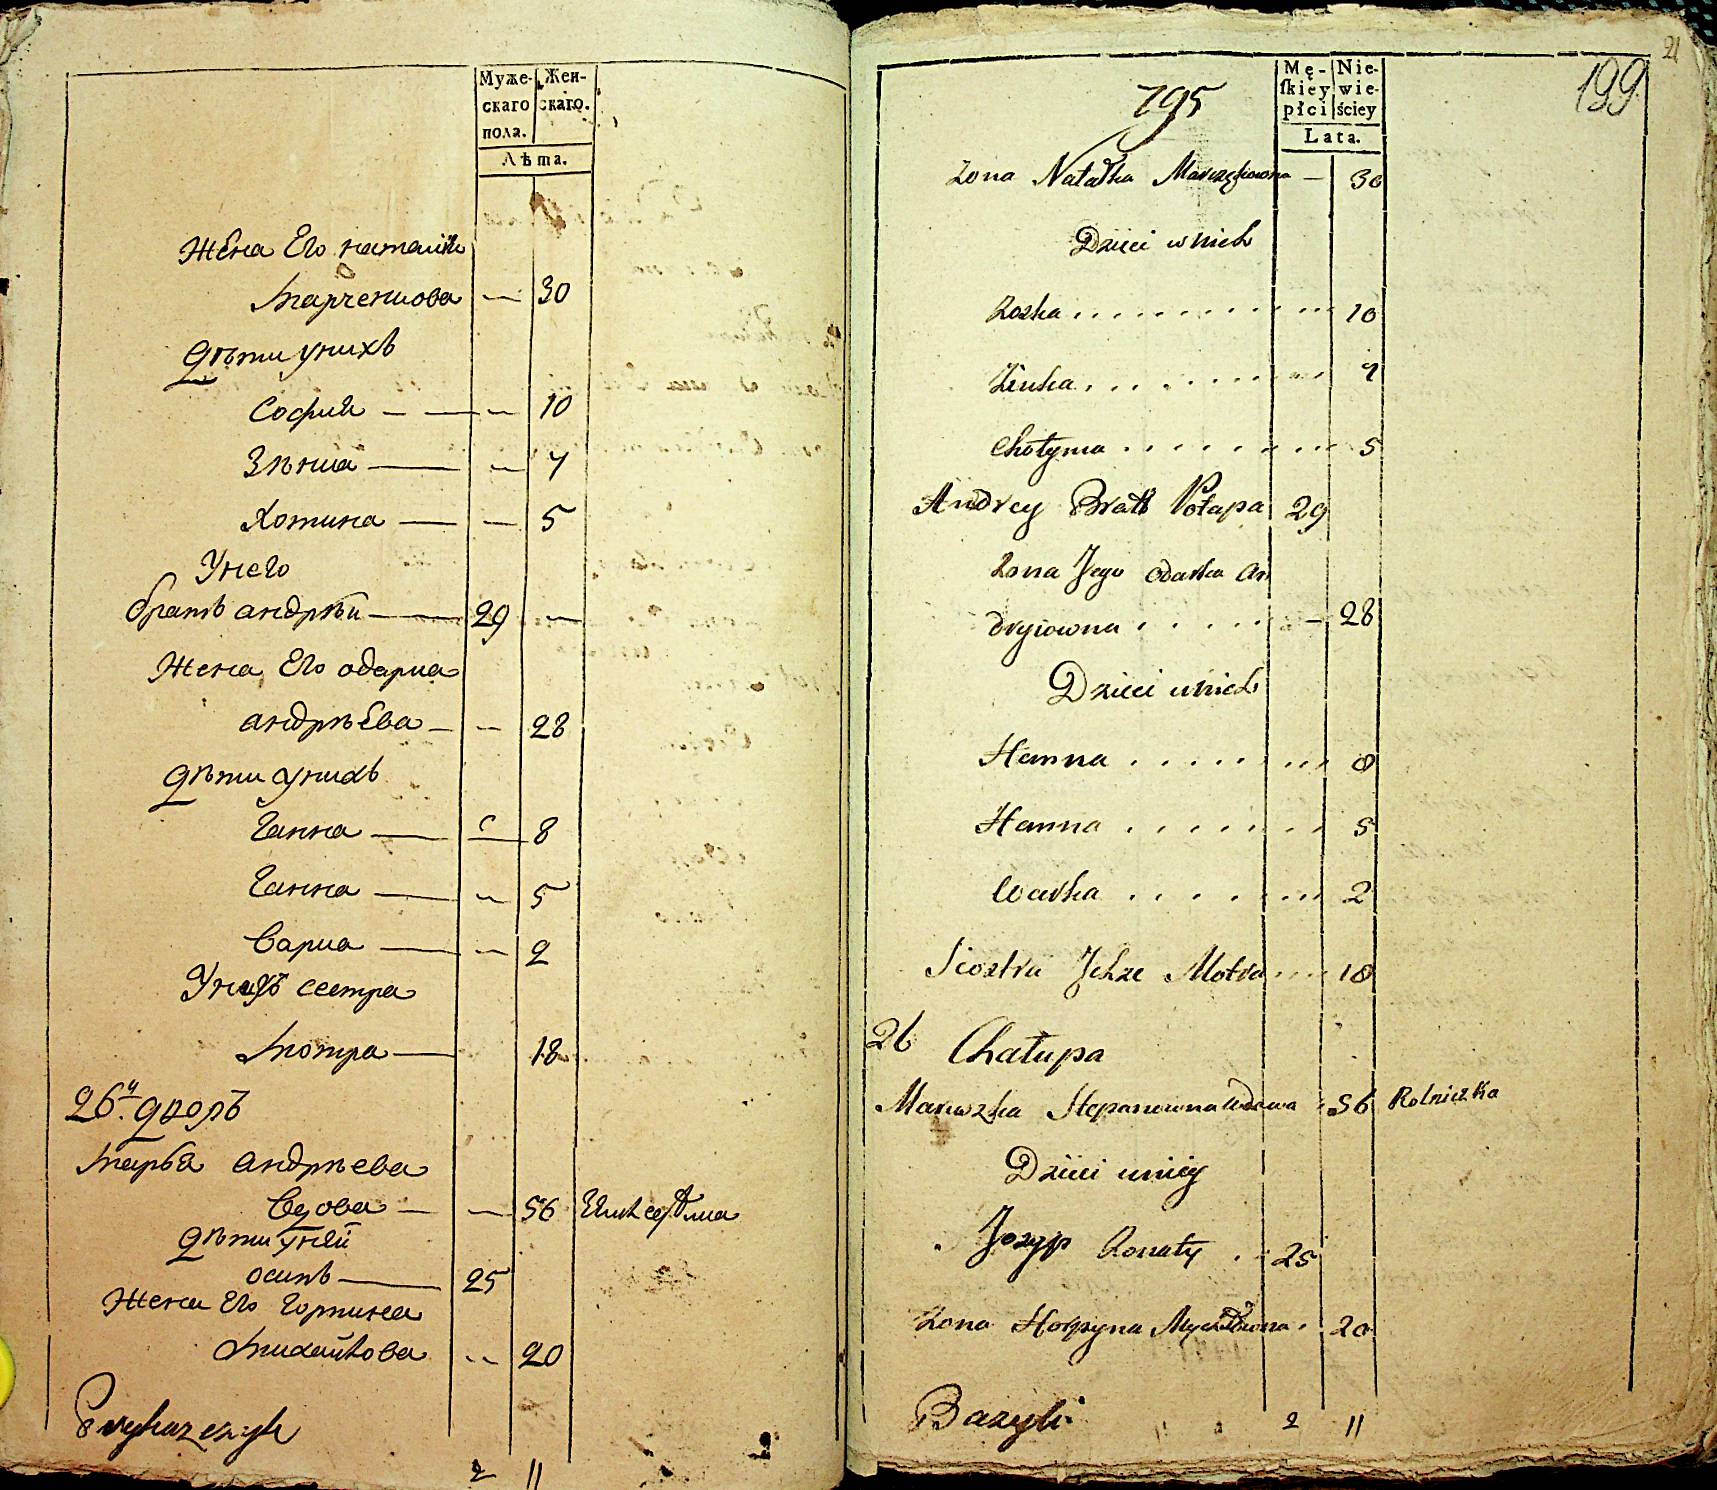 Муже-
скаго
пола.
Жен-
скаго.
Лѣта.
Жена Его наталия
Марченкова — 30
Дѣти унихъ
София — — — 10
Зѣнка — — 7
Хотина — — 5
Унего
братъ андрѣй — 29 —
Жена Его одарка
андрѣева — — 28
Дѣти унихъ
Ганна — 8
Ганна — — 5
Варка — — 2
Унихъ сестра
Мотра — 18
26й дворъ
Марья андрѣева
Вдова — — 56
Дѣти уней
осипъ — 25
Жена Его Горпина
Михайлова — 20
Prykazczyk
2 11
21
199
795
Mę-
skiey
płci
Nie-
wie-
ściey
Lata.
Zona Natałka Marczękowna — 30
Dzieci w nich
Zozka 10
Zinka 7
Chotyma 5
Andrey Bratt Potapa 29
Zona Jego Odarka An
dryiowna — 28
Dzieci unich
Hanna 8
Hanna 5
Warka 2
Siostra Jchze Motra 18
26 Chałupa
Maruszka Stepanowna Wdowa 56 Rolniczka
Dzieci uniey
Jozyp Zonaty 25
Zona Horpyna Mychałkowna 20
Bazyli
2 11